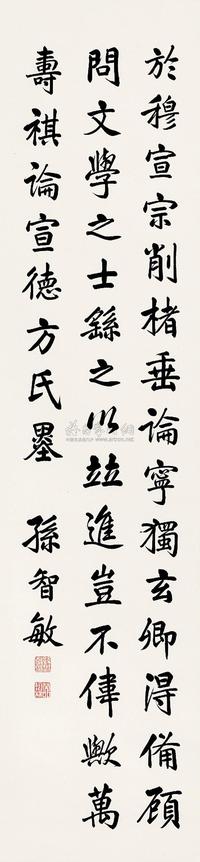 於穆宣宗削楮垂論寧獨玄卿得備顧
問文學之士繇之以竝進豈不偉歟萬
壽祺論宣德方氏墨 孫智敏